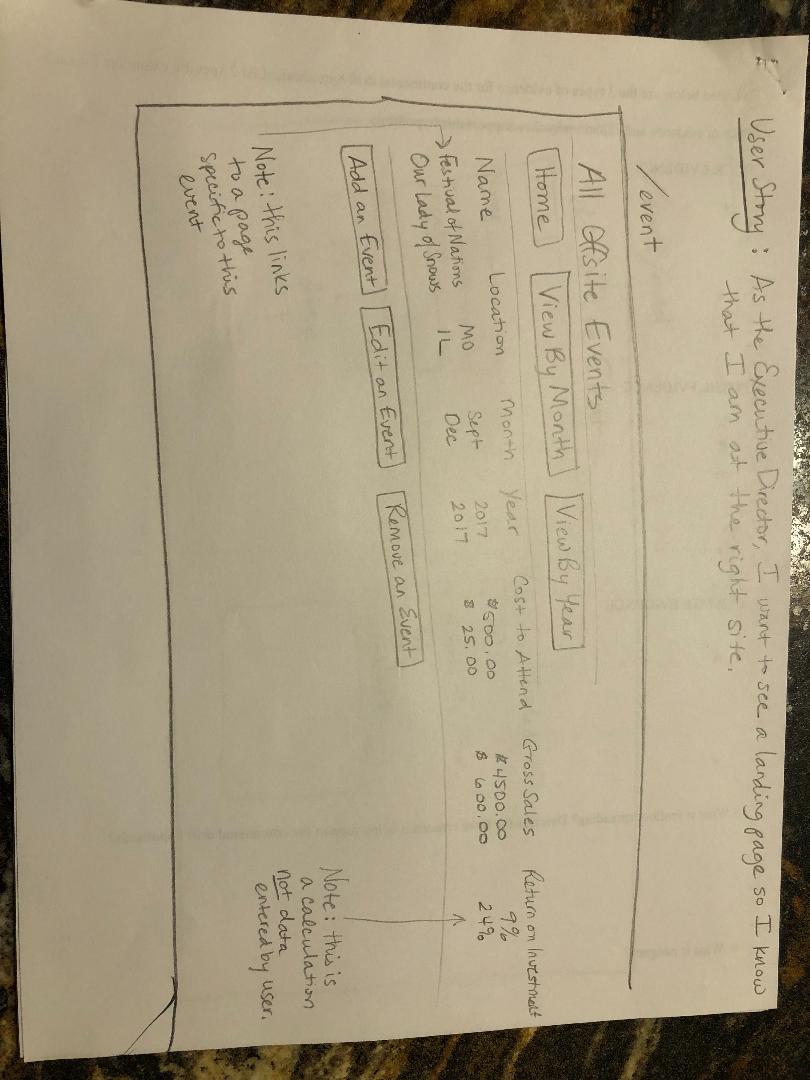 User Story: As the Executive Director, I want to see a landing page so I know
that I am at the right site.
/event
All Offsite Events
Home View By Month View By Year
Name Location Month Year Cost to Attend Gross Sales Return on Investment
Festival of Nations MO Sept 2017 $500.00 $4500.00 9%
Our Lady of Snows IL Dec 2017 $ 25.00 $ 600.00 24%
Add an Event Edit an Event Remove an Event
Note: this links
to a page
specific to this
event
Note: this is
a calculation
not data
entered by user.